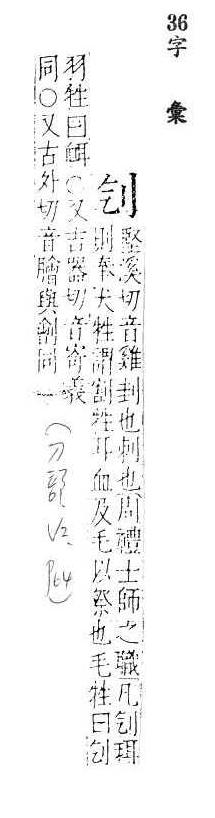 36字彙
刉
堅溪切音雞刲也刺也周禮士師之職凡刉珥
則奉犬牲謂割牲耳血及毛以祭也毛牲曰刉
羽牲曰衈○又吉器切音寄義
同○又古外切音膾與劊同
P64